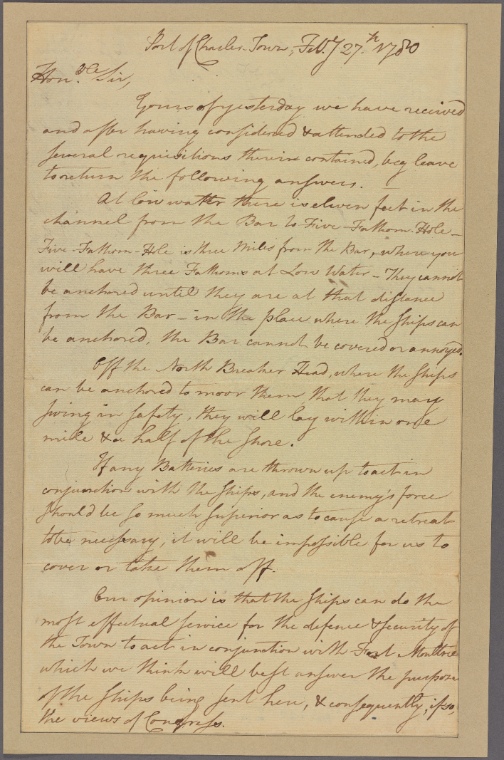 Port of Charles Town, Feb.y 27.th 1780
Hon.ble Sir,
Yours of yesterday we have received
and after having considered & attended to the
several requisitions therein contained, beg leave
to return the following answers.
At low watter there is eleven feet in the
channel from the Bar to Five-Fathom-Hole_
Five-Fathom-Hole is three Miles from the Bar, where you
will have three Fathoms at Low Water_They cannot
be anchored until they are at that distance
from the Bar_in the place where the Ships can
be anchored, the Bar cannot be covered or annoyed.
Off the North Breaker Head, where the Ships
can be anchored to moor them that they may
swing in safety, they will lay within one
mile & a half of the Shore.
If any Batteries are thrown up to act in
conjunction with the Ships, and the enemy's force
should be so much superior as to cause a retreat
to be necessary, it will be impossible for us to
cover or take them off.
Our opinion is that the Ships can do the
most effectual service for the defence & security of
the Town to act in conjunction with Fort Moultrie
which we think will best answer the purpose
of the Ships being sent here, & consequently, if so,
the views of Congress.